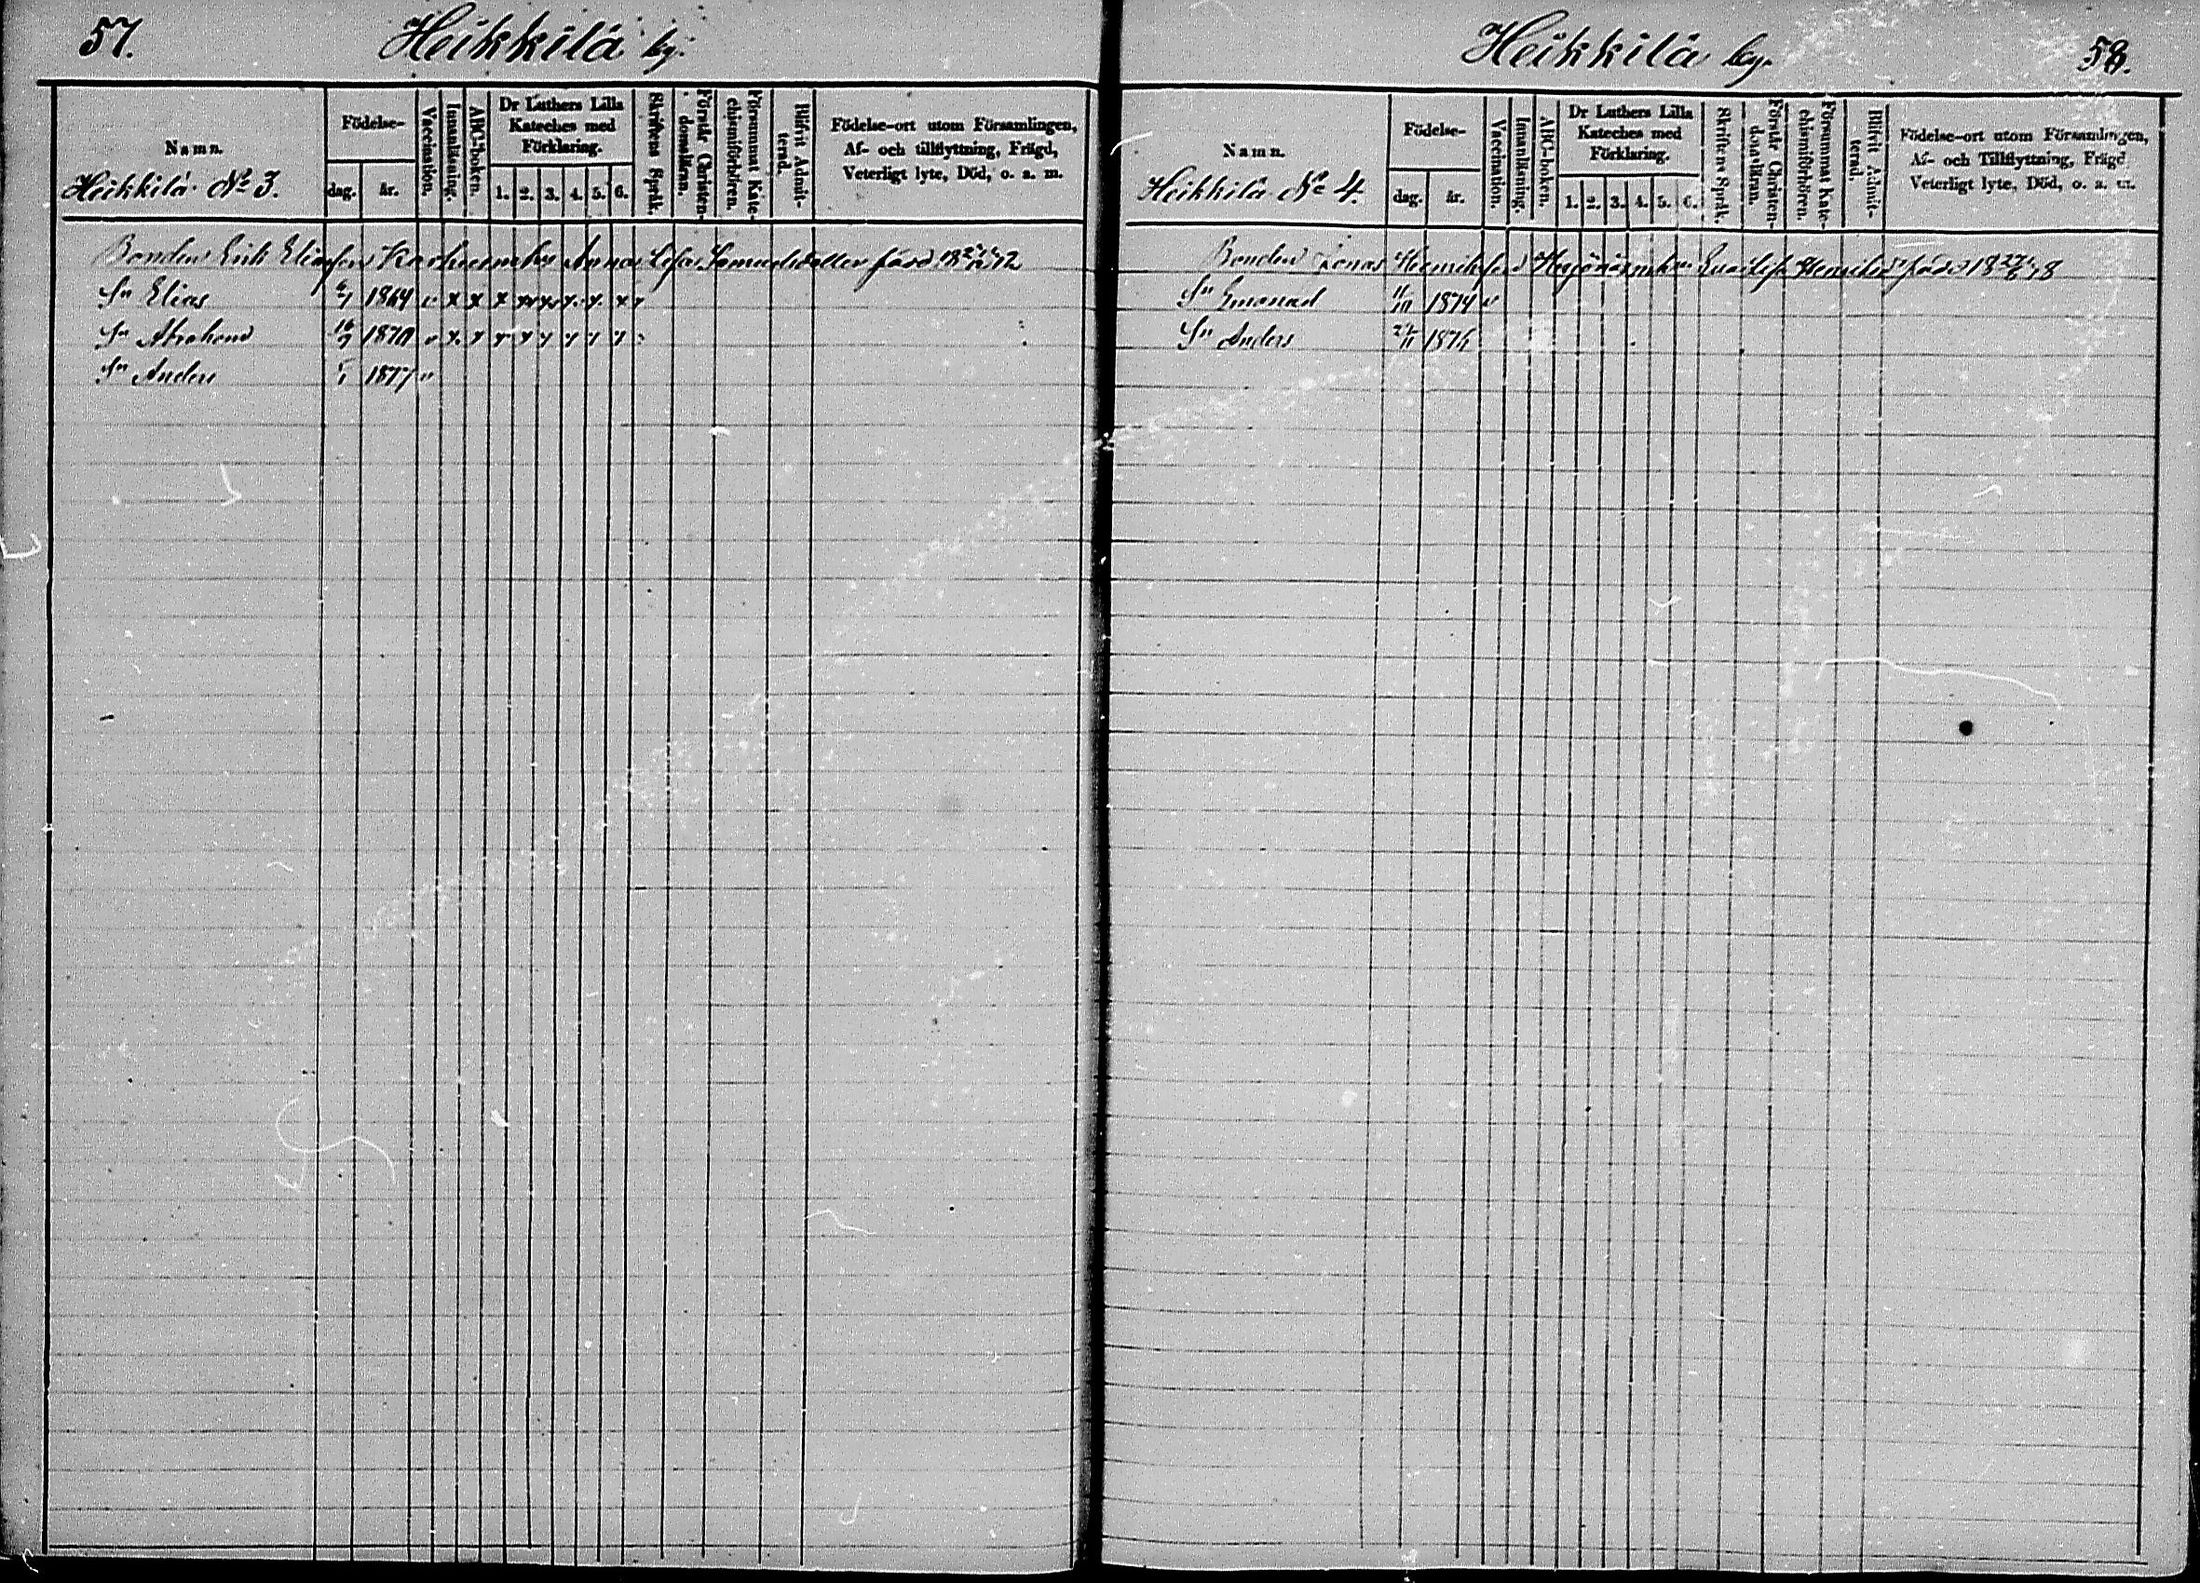 57. Heikkilä by.
Namn.
Födelse-
dag. år.
Vaccination.
Innanläsning.
ABC-boken.
Dr Luthers Lilla Kateches med Förklaring.
1. 2. 3. 4. 5. 6.
Skriftens Språk.
Förstår Christendomsläran.
Försummat Katechismiförhören.
Blifvit Admitterad.
Födelse-ort utom Församlingen,
Af- och tillflyttning, Frägd,
Veterligt lyte, Död, o. a. m.
Heikkilä No 3.
Bonden Erik Eliasson Anna Lisa född
Sn Elias 1869
Sn Abraham 1870
Sn Anders 1877
Heikkilä by. 58.
Namn.
Födelse-
dag. år.
Vaccination.
Innanläsning.
ABC-boken.
Dr Luthers Lilla Kateches med Förklaring.
1. 2. 3. 4. 5. 6.
Skriftens Språk.
Förstår Christendomsläran.
Försummat Katechismiförhören.
Blifvit Admitterad.
Födelse-ort utom Församlingen,
Af- och Tillflyttning, Frägd
Veterligt lyte, Död, o. a. m.
Heikkilä No 4.
Bonden Jonas Henriksson född
Sn 11/10 1874
Sn Anders